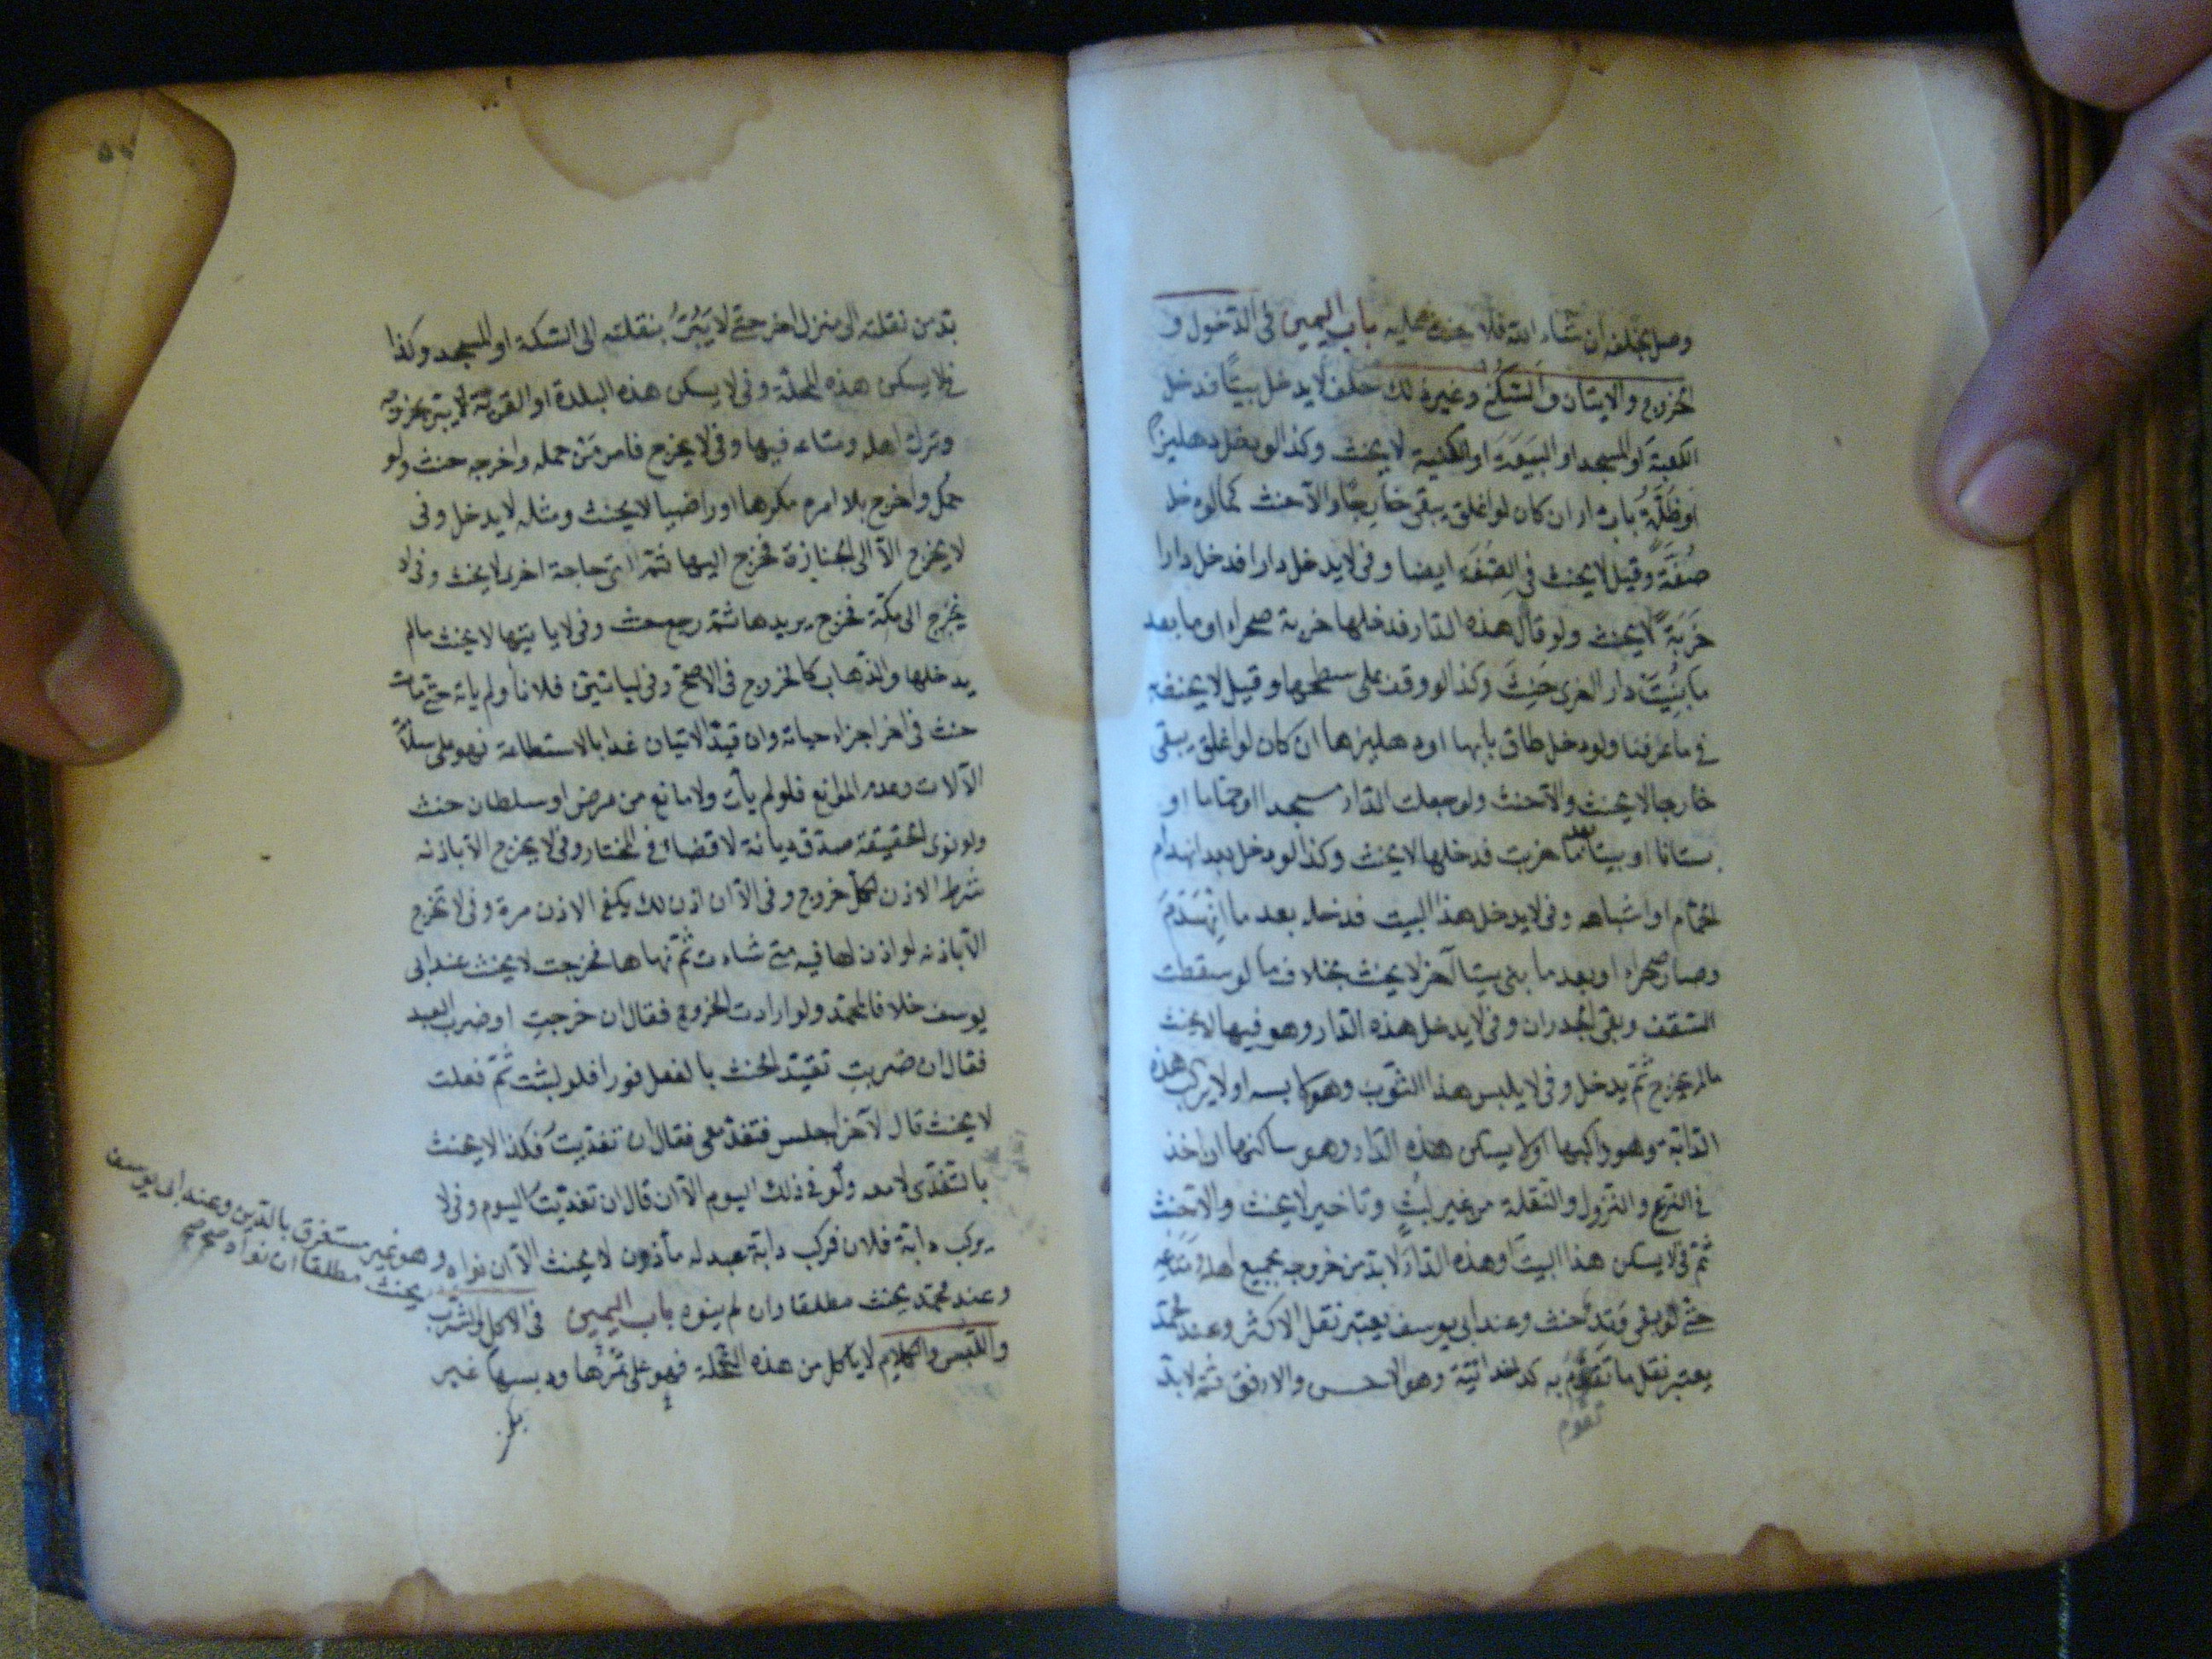 وصل بحلفه ان شاء الله فلا حنث عليه باب اليمين فى الدخول و
الخروج والاتيان والسكنى وغير ذلك حلف لا يدخل بيتًا فدخل
الكعبة او المسجد او البيعة او الكنيسة لا يحنث وكذا لو دخل دهليزا
او ظلة باب دار ان كان لو اغلق يبقى خارجًا والا حنث كما لو دخل
صُفّةً وقيل لا يحنث فى الصُفّة ايضا وفى لا يدخل دارا فدخل دارا
خَرِبَةً لا يحنث ولو قال هذه الدار فدخلها خربة صحراء او ما بعد
ما بُنِيَت دار اخرى حَنِثَ وكذا لو وقف على سطحها وقيل لا يحنث
فى ما عرفنا ولو دخل طاق بابها او دهليزها ان كان لو اغلق يبقى
خارجا لا يحنث والا حنث ولو جعلت الدار مسجدا او حماما او
بستانا او بيتا بعد ما خربت فدخلها لا يحنث وكذا لو دخل بعد انهدام
الحمام او اشباهه وفى لا يدخل هذا البيت فدخله بعد ما اِنهَدَمَ
وصار صحراء او بعد ما بنى بيتا آخر لا يحنث بخلاف ما لو سقطت
السقف وبقى الجدران وفى لا يدخل هذه الدار وهو فيها لا يحنث
مالم يخرج ثمّ يدخل وفى لا يلبس هذا الثوب وهو لابسه او لا يركب هذه
الدابّة وهو راكبها او لا يسكن هذه الدار وهو ساكنها ان اخذ
فى النزع والنزول والنقلة من غير لبثٍ وتاخير لا يحنث والا حنث
ثمّ فى لا يسكن هذا البيت او هذه الدار لا بدّ من خروجه بجميع اهله ومتاعه
حتى لو بقى وَتِد حنث وعند ابى يوسف يعتبر نقل الاكثر وعند محمد
يعتبر نقل ما تقوم به كدخدائية وهو الاحسن والارفق ثمّ لا بدّ
تقوم
بدّ من نقلته الى منزل اخر حتى لا يَبُرّ بنقلته الى السكة او المسجد وكذا
فى لا يسكن هذه المحلة وفى لا يسكن هذه البلدة او القرية لا يبر بخروجه
وترك اهله ومتاعه فيها وفى لا يخرج فامر مَنْ حمله واخرجه حنث ولو
حُمل واخرج بلا امره مكرها او راضيا لا يحنث ومثله لا يدخل وفى
لا يخرج الا الى الجنازة فخرج اليها ثمّ اتى حاجة اخرى لا يحنث وفى لا
يخرج الى مكّة فخرج يريدها ثمّ رجع حنث وفى لا ياتيها لا يحنث مالم
يدخلها والذهاب كالخروج فى الاصحّ وفى لياتين فلانا ولم ياته حتى مات
حنث فى اخر اجزاء حياته وان قيّد الاتيان غدا بالاستطاعة فهو على سلامة
الآلات وعدم الموانع فلو لم يأت ولا مانع من مرض او سلطان حنث
ولو نوى الحقيقة صدّق ديانة لا قضاء فى المختار وفى لا يخرج الا باذنه
شرط الاذن لكل خروج وفى الا ان اذن لك يكفى الاذن مرة وفى لا تخرج
الا باذنه لو اذن لها فيه متى شاءت ثمّ نهاها فخرجت لا يحنث عند ابى
يوسف خلافا لمحمّد ولو ارادت الخروج فقال ان خرجتِ او ضرب العبد
فقال ان ضربتِ تقيّد الحنث بالفعل فورا فلو لبثت ثمّ فعلت
لا يحنث قال لآخر اجلس فتغدّ معى فقال ان تغدّيت فكذا لا يحنث
بالتغدّى لا معه ولو فى ذلك اليوم الا ان قال ان تغديّت اليوم وفى لا
يركب دابّة فلان فركب دابة عبد له مأذون لا يحنث الا ان نواه
وهو غير مستغرق بالدين وعند ابى يوسف
يحنث مطلقا ان نواه صح
وعند محمّد يحنث مطلقا وان لم ينوه باب اليمين فى الاكل والشرب
واللبس والكلام لا ياكل من هذه النخلة فهو على ثمرها ودبسها غير